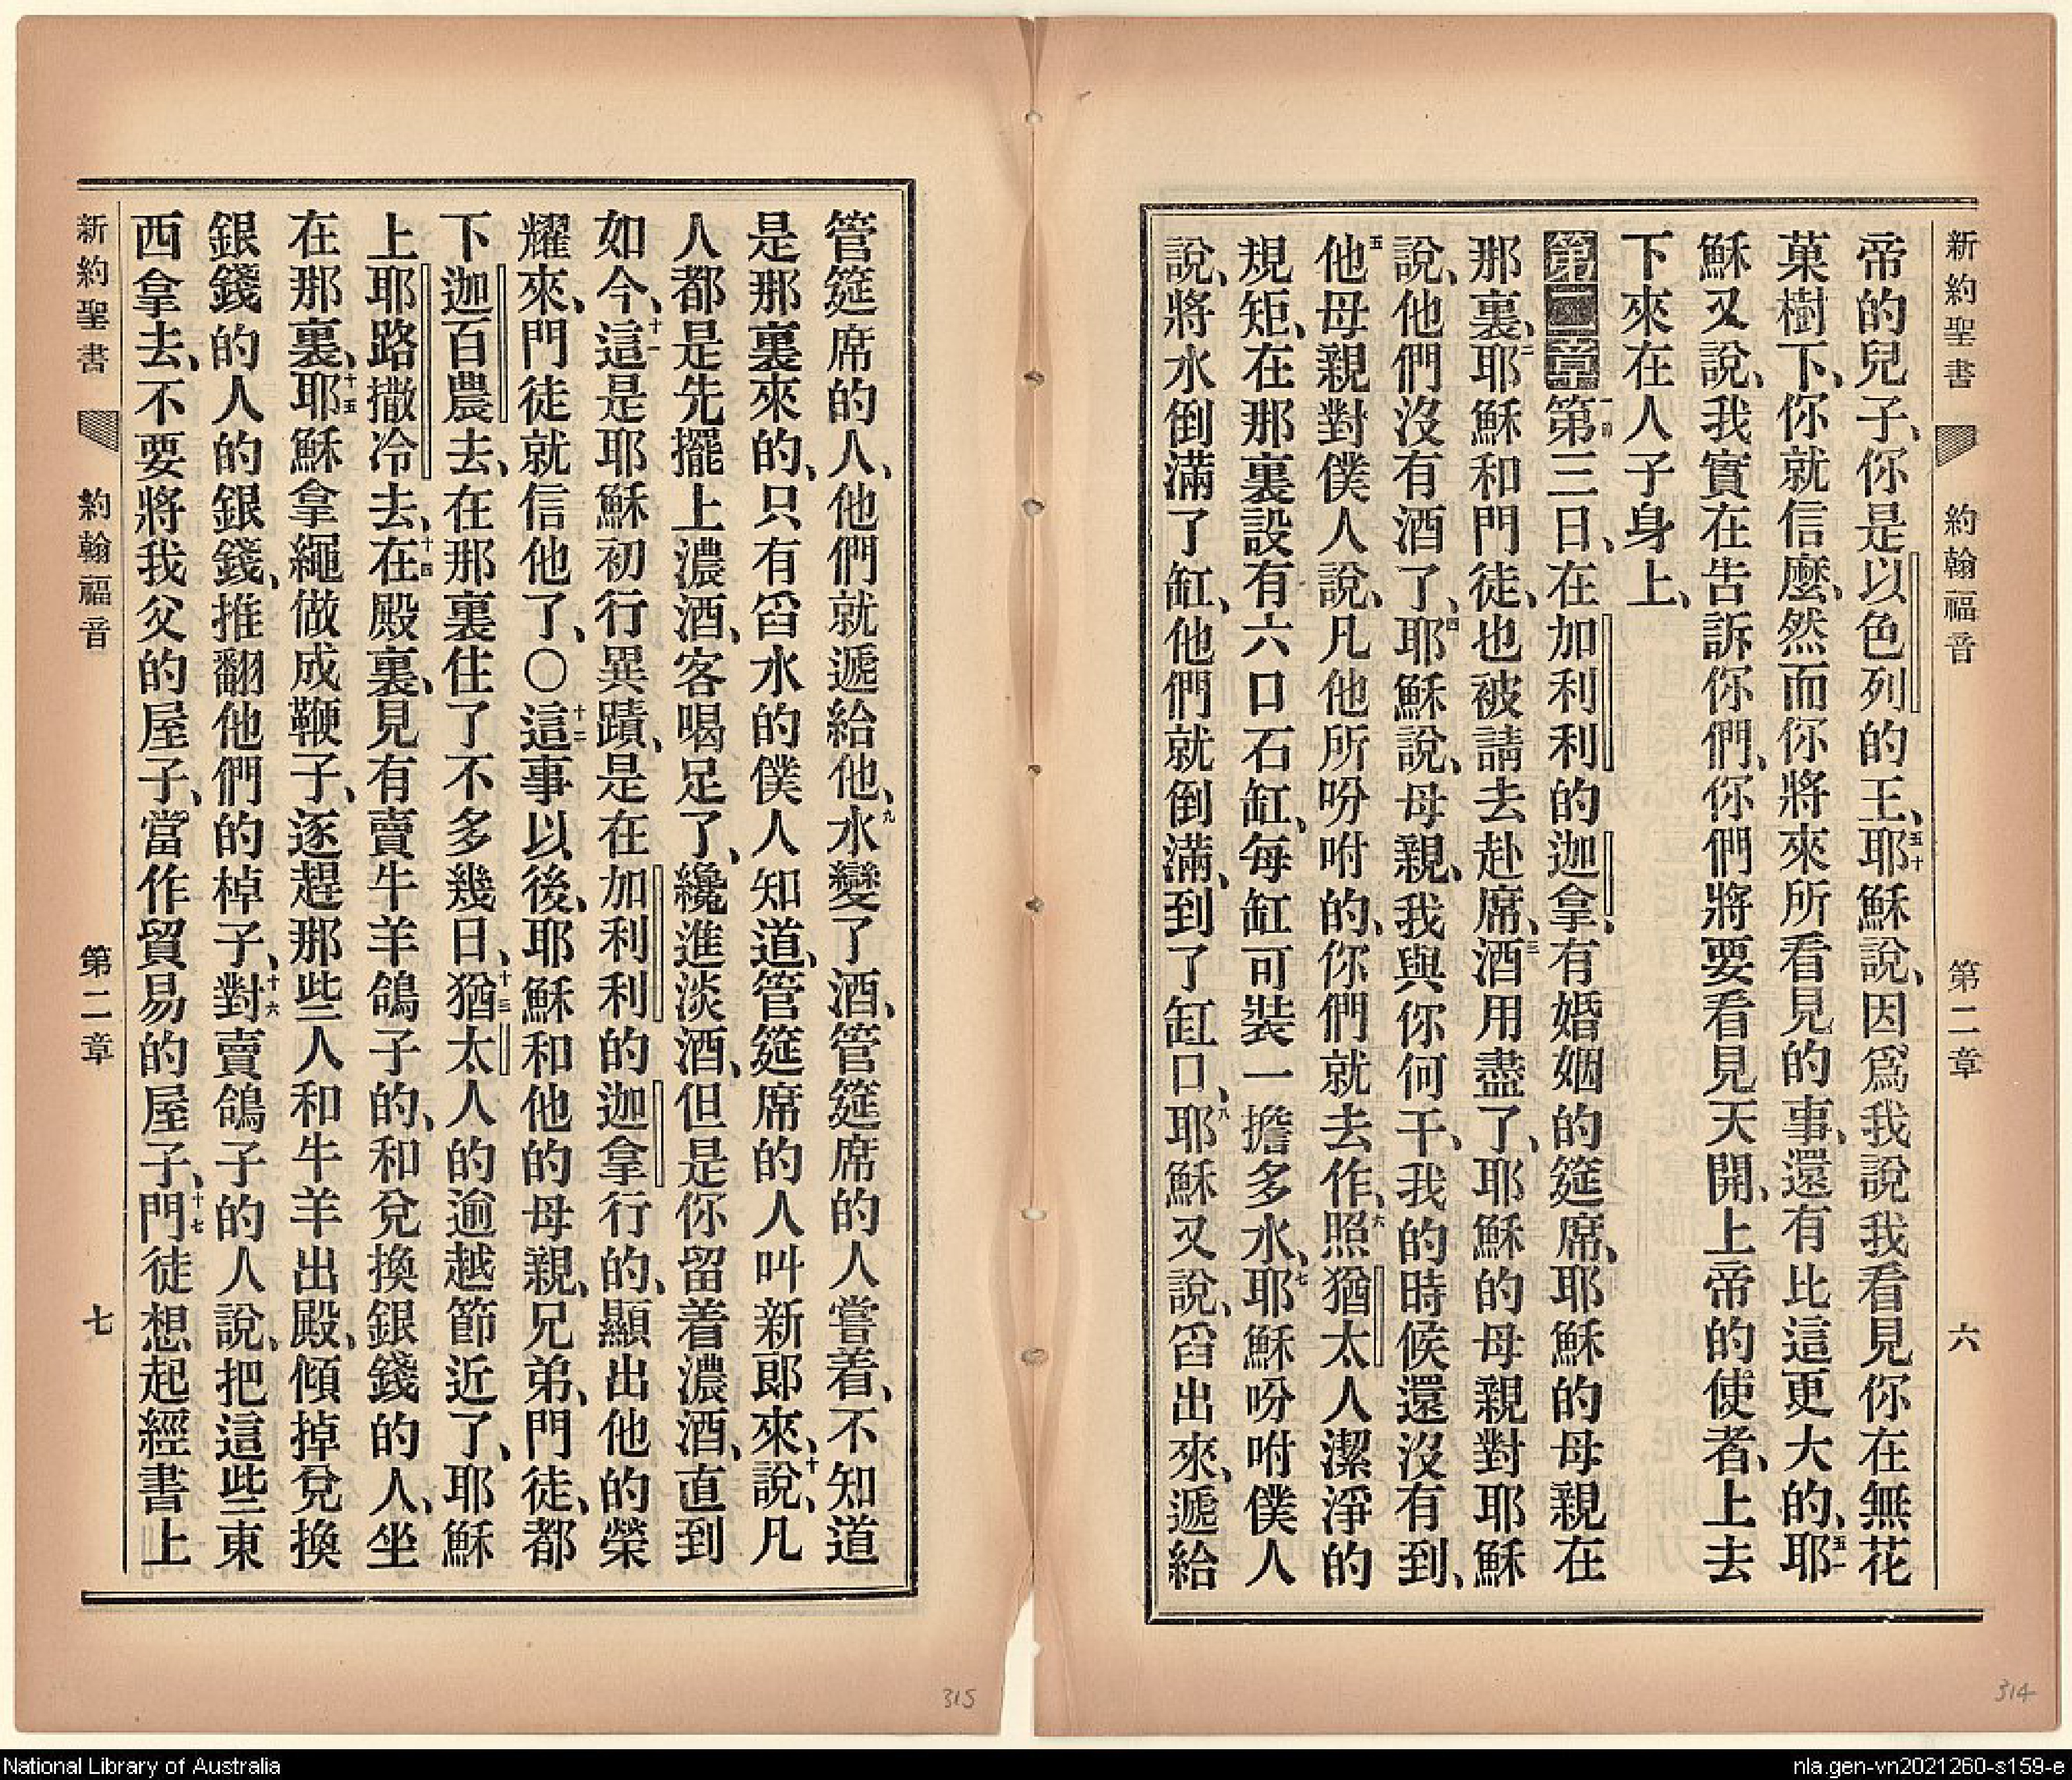 新約聖書 約翰福音 第二章 六
帝的兒子、你是以色列的王、五十耶穌說、因爲我說我看見你在無花
菓樹下、你就信麼、然而你將來所看見的事、還有比這更大的、五一耶
穌又說、我實在告訴你們、你們將要看見天開、上帝的使者、上去
下來在人子身上、
第二章 一節第三日、在加利利的迦拿、有婚姻的筵席、耶穌的母親在
那裏、二耶穌和門徒、也被請去赴席、三酒用盡了、耶穌的母親對耶穌
說、他們沒有酒了、四耶穌說、母親、我與你何干、我的時候還沒有到、
五他母親對僕人說、凡他所吩咐的、你們就去作、六照猶太人潔淨的
規矩、在那裏設有六口石缸、每缸可裝一擔多水、七耶穌吩咐僕人
說、將水倒滿了缸、他們就倒滿、到了缸口、八耶穌又說、舀出來、遞給
管筵席的人、他們就遞給他、九水變了酒、管筵席的人嘗着、不知道
是那裏來的、只有舀水的僕人知道、管筵席的人叫新郎來、十說、凡
人都是先擺上濃酒、客喝足了、纔進淡酒、但是你留着濃酒、直到
如今、十一這是耶穌初行異蹟、是在加利利的迦拿行的、顯出他的榮
耀來、門徒就信他了、〇十二這事以後、耶穌和他的母親、兄弟、門徒、都
下迦百農去、在那裏住了不多幾日、十三猶太人的逾越節近了、耶穌
上耶路撒冷去、十四在殿裏、見有賣牛羊鴿子的、和兌換銀錢的人、坐
在那裏、十五耶穌拿繩做成鞭子、逐趕那些人和牛羊出殿、傾掉兌換
銀錢的人的銀錢、推翻他們的棹子、十六對賣鴿子的人說、把這些東
西拿去、不要將我父的屋子、當作貿易的屋子、十七門徒想起經書上
新約聖書 約翰福音 第二章 七
315
314
National Library of Australia
nla.gen-vn2021260-s159-e